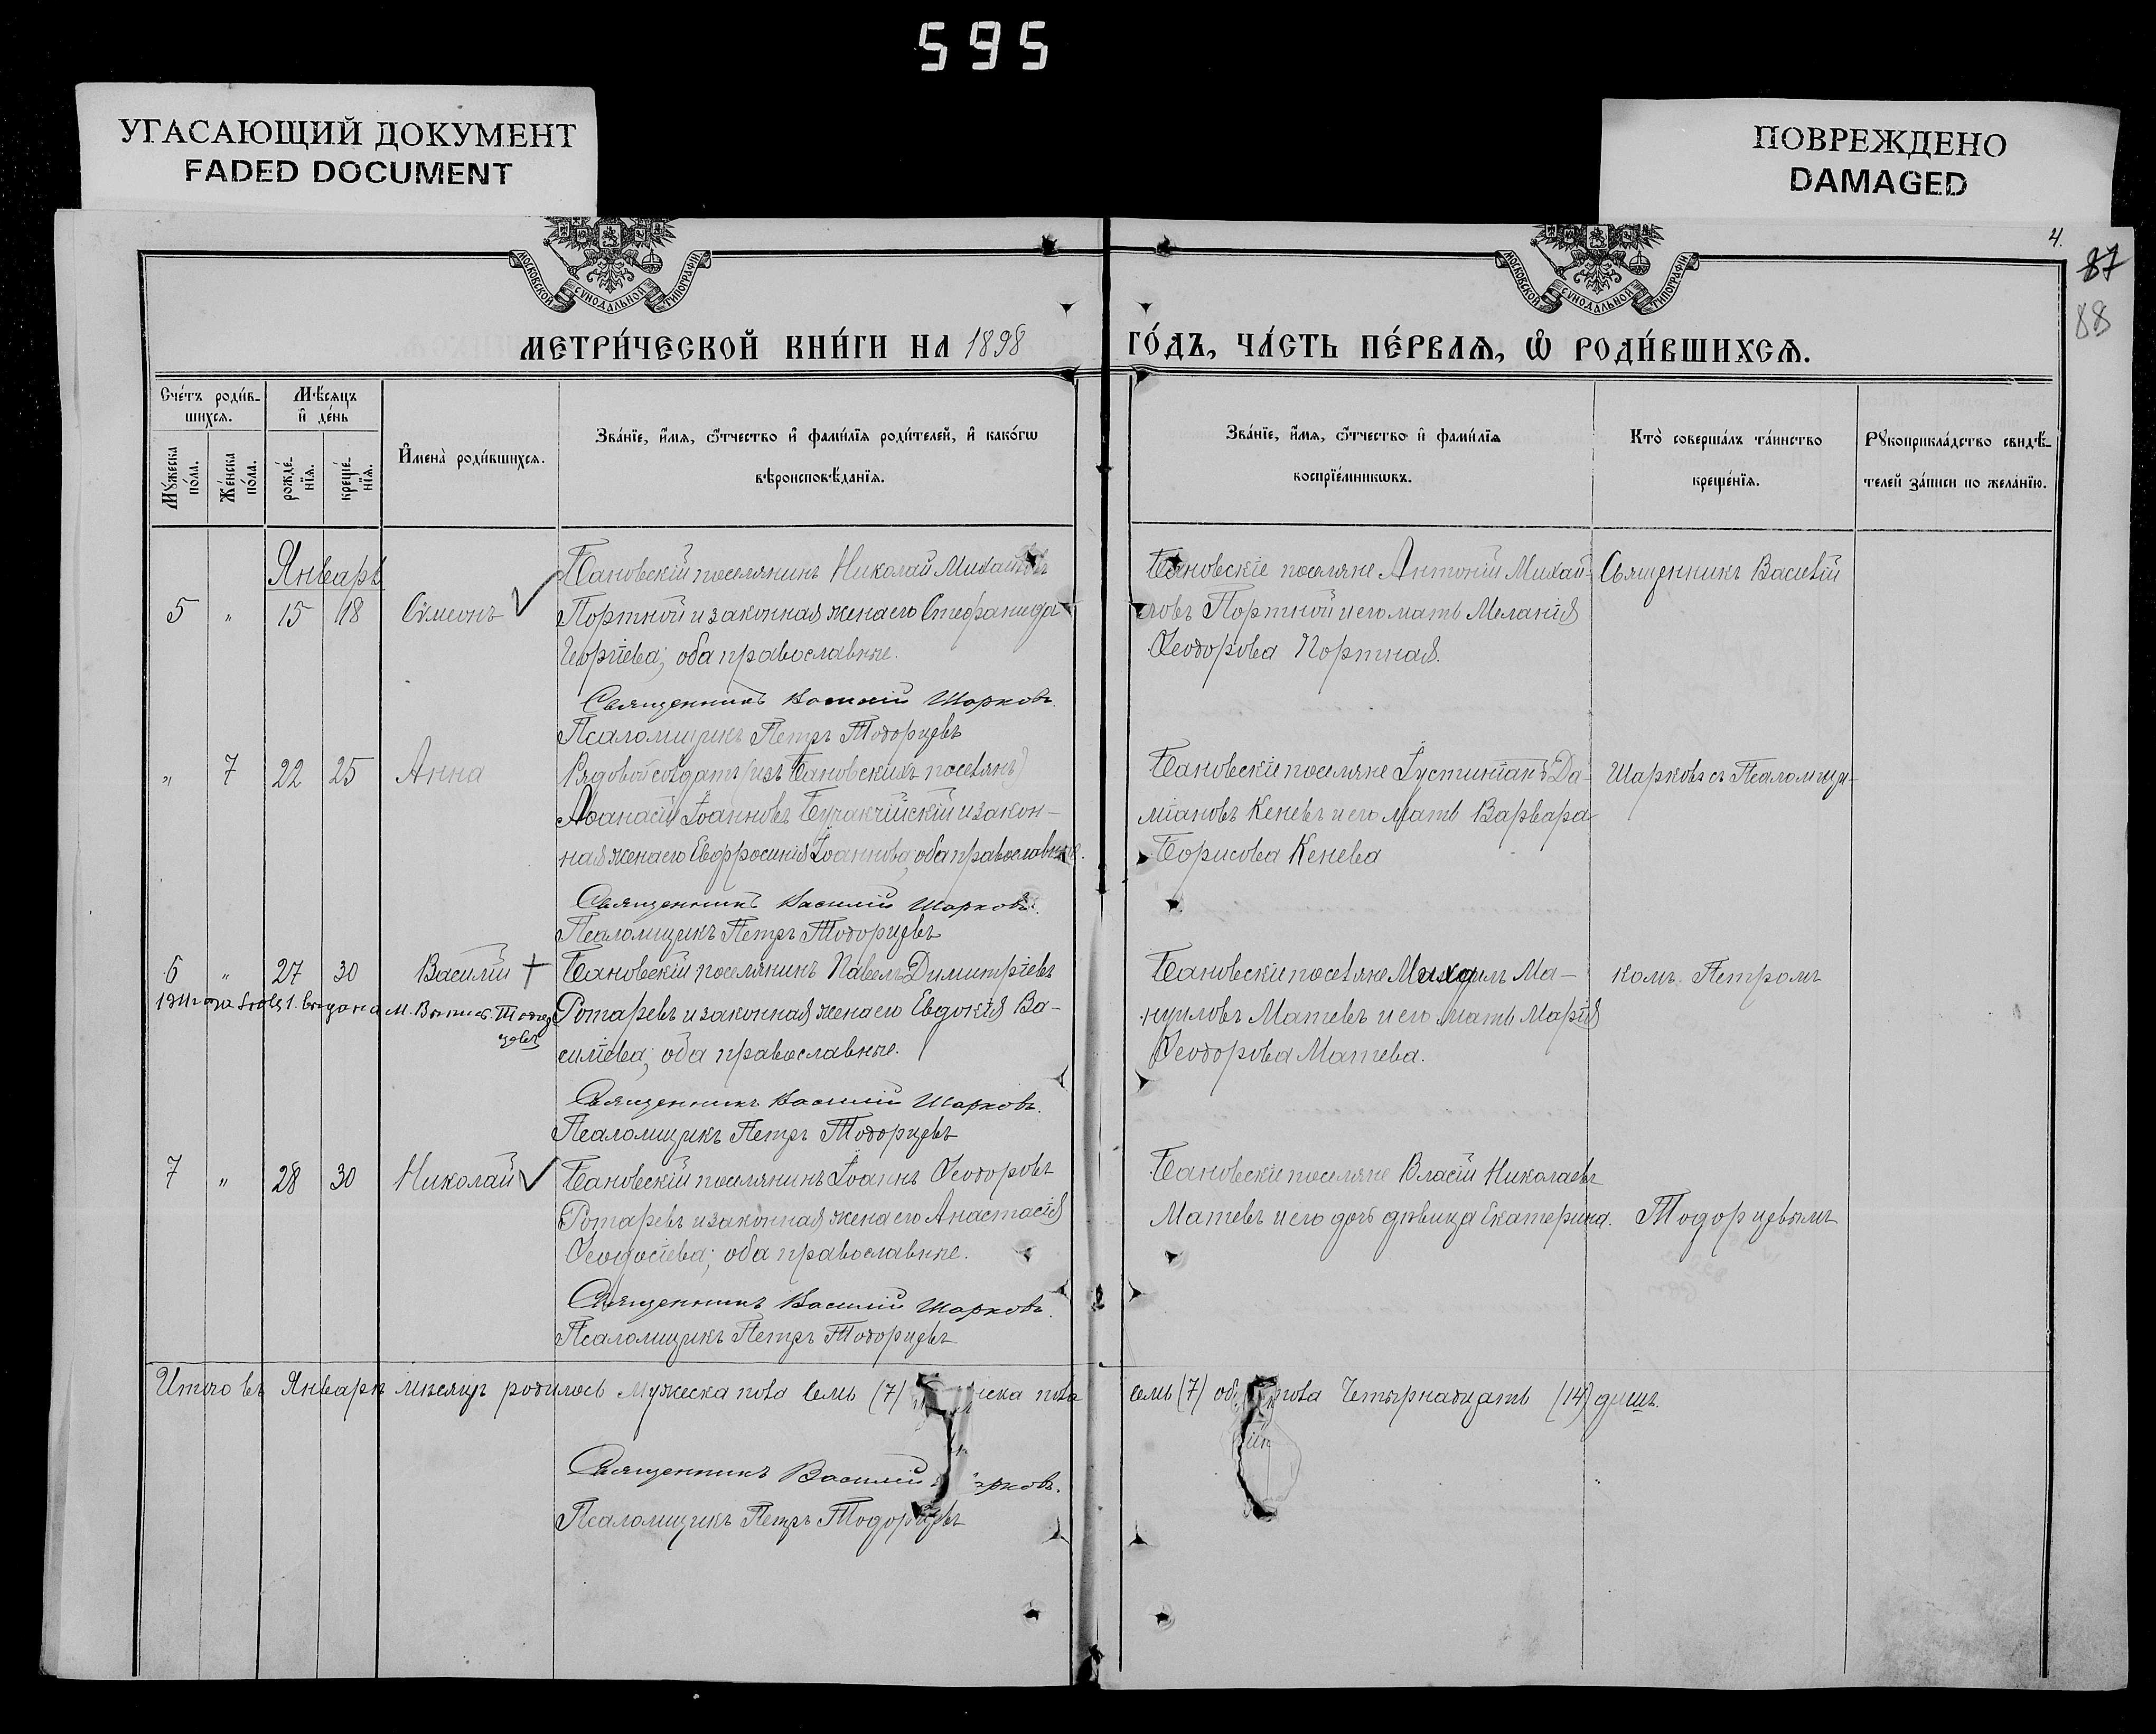 595
УГАСАЮЩИЙ ДОКУМЕНТ
FADED DOCUMENT
ПОВРЕЖДЕНО
DAMAGED
4.
87
88
МОСКОВСКОЙ СѴНОДАЛЬНОЙ ТИПОГРАФІИ
МОСКОВСКОЙ СѴНОДАЛЬНОЙ ТИПОГРАФІИ
МЕТРИ́ЧЕСКОЙ КНИ́ГИ НА 1898 ГО́ДЪ, ЧА́СТЬ ПЕ́РВАѦ, Ѡ РОДИ́ВШИХСѦ.
Сче́тъ роди́в-
шихсѧ.
Мѣ́сѧцъ
и҆ де́нь
Мꙋ́жеска
по́ла.
Же́нска
по́ла.
рожде́-
нїѧ.
креще́-
нїѧ.
И҆мена̀ роди́вшихсѧ.
Зва́нїе, и҆́мѧ, ѻ҆́тчество и҆ фами́лїѧ роди́телей, и҆ како́гѡ
вѣроисповѣ́данїѧ.
Зва́нїе, и҆́мѧ, ѻ҆́тчество и҆ фами́лїѧ
воспрїе́мникѡвъ.
Кто̀ соверша́лъ та́инство
креще́нїѧ.
Рꙋкоприкла́дство свидѣ́-
телей за́писи по жела́нїю.
Январь
5 " 15 18 Симеонъ
Бановскій поселянинъ Николай Михайловъ
Портной и законная жена его Стефанида
Георгіева; оба православные.
Священникъ Василій Шарковъ.
Псаломщикъ Петръ Тодорцевъ
Бановскіе поселяне Антоній Михай-
ловъ Портной и его мать Меланія
Ѳеодорова Портная.
Священникъ Василій
" 7 22 25 Анна
Рядовой солдатъ (изъ Бановскихъ поселянъ)
Аѳанасій Іоанновъ Бучакчійскій и закон-
ная жена его Евфросинія Іоаннова; оба православные.
Священникъ Василій Шарковъ.
Псаломщикъ Петръ Тодорцевъ
Бановскіе поселяне Іустиніанъ Да-
міановъ Кеневъ и его мать Варвара
Борисова Кенева
Шарковъ съ Псаломщи-
6 " 27 30 Василій
Бановскій поселянинъ Павелъ Димитріевъ
Ротаревъ и законная жена его Евдокія Ва-
силіева; оба православные.
Священникъ Василій Шарковъ.
Псаломщикъ Петръ Тодорцевъ
Бановскіе поселяне Михаилъ Ма-
нуиловъ Матевъ и его мать Марія
Ѳеодорова Матева.
комъ Петромъ
7 " 28 30 Николай
Бановскій поселянинъ Іоаннъ Ѳеодоровъ
Ротаревъ и законная жена его Анастасія
Ѳеодосіева; оба православные.
Священникъ Василій Шарковъ.
Псаломщикъ Петръ Тодорцевъ
Бановскіе поселяне Власій Николаевъ
Матевъ и его дочь дѣвица Екатерина.
Тодорцевымъ
Итого въ Январѣ мѣсяцѣ родилось мужеска пола семь (7) ска пола семь (7) об пола Четырнадцать (14) душъ.
Священникъ Василій рковъ.
Псаломщикъ Петръ Тодорцевъ